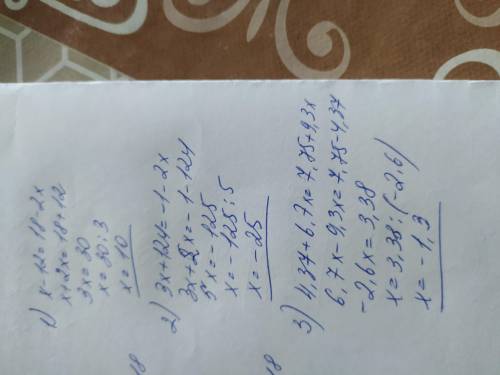 1) x-12=18-2x
x+2x=18+12
3x=30
x=30:3
x=10
2) 3x+124=-1-2x
3x+2x=-1-124
5x=-125
x=-125:5
x=-25
3) 4,37+6,7x=7,75+9,3x
6,7x-9,3x=7,75-4,37
-2,6x=3,38
x=3,38:(-2,6)
x=-1,3
18
18